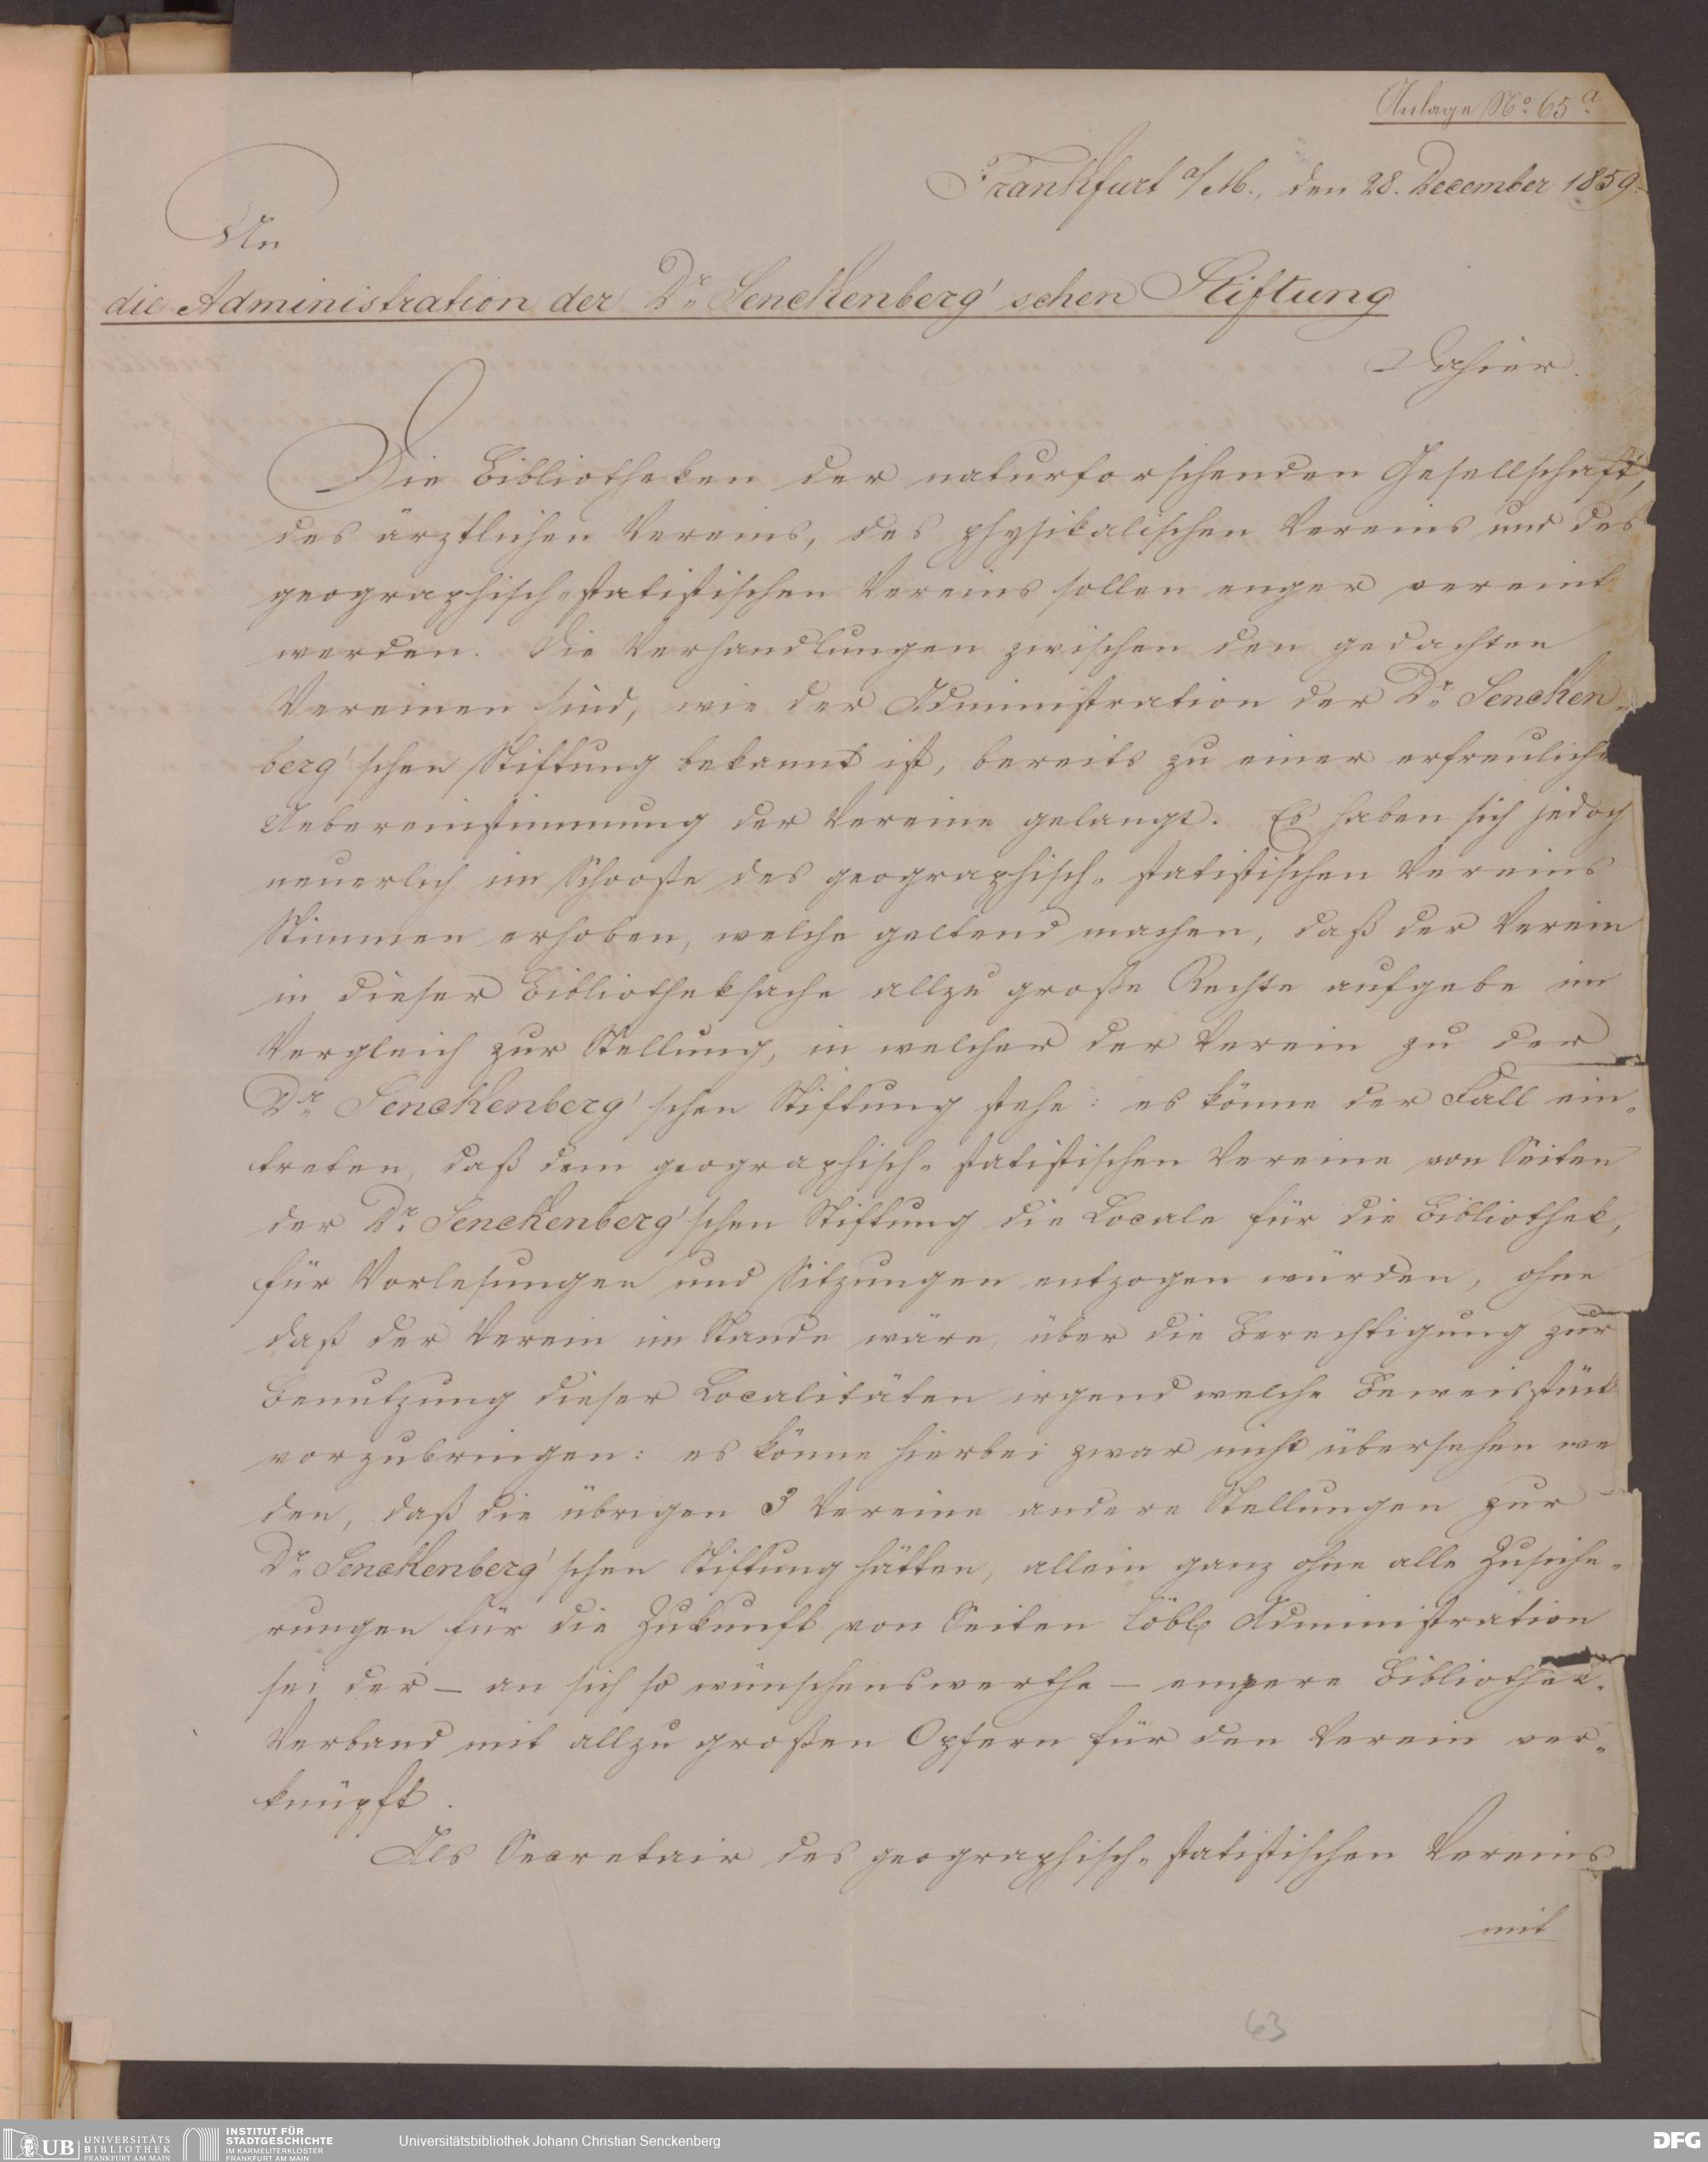 Anlage No. 65a.
Frankfurt a/M., den 28. December 1859.
An
die Administration der Dr. Senckenberg'schen Stiftung
Dahier.
Die Bibliotheken der naturforschenden Gesellschaft,
des ärztlichen Vereins, des physikalischen Vereins und des
geographisch-statistischen Vereins sollen enger vereint
werden. Die Verhandlungen zwischen den gedachten
Vereinen sind, wie der Administration der Dr. Sencken-
berg'schen Stiftung bekannt ist, bereits zu einer erfreuliche
Uebereinstimmung der Vereine gelangt. Es haben sich jedoch
neuerlich im Schooße des geographisch-statistischen Vereins
Stimmen erhoben, welche geltend machen, daß der Verein
in dieser Bibliotheksache allzu große Rechte aufgebe im
Vergleich zur Stellung, in welcher der Verein zu der
Dr. Senckenberg'schen Stiftung stehe: es könne der Fall ein-
treten, daß dem geographisch-statistischen Vereine von Seiten
der Dr. Senckenberg'schen Stiftung die Locale für die Bibliothek,
für Vorlesungen und Sitzungen entzogen würden, ohne
daß der Verein im Stande wäre, über die Berechtigung zur
Benutzung dieser Localitäten irgend welche Beweisstück
vorzubringen: es könne hierbei zwar nicht übersehen we
den, daß die übrigen 3 Vereine andere Stellungen zur
Dr. Senckenberg'schen Stiftung hätten, allein ganz ohne alle Zusiche-
rungen für die Zukunft von Seiten löbl. Administration
sei der – an sich so wünschenswerthe – engere Bibliothek-
Verband mit allzu großen Opfern für den Verein ver-
knüpft.
Als Secretair des geographisch-statistischen Vereins
mit
63
UB UNIVERSITÄTS
BIBLIOTHEK
FRANKFURT AM MAIN
INSTITUT FÜR
STADTGESCHICHTE
IM KARMELITERKLOSTER
FRANKFURT AM MAIN
Universitätsbibliothek Johann Christian Senckenberg
DFG